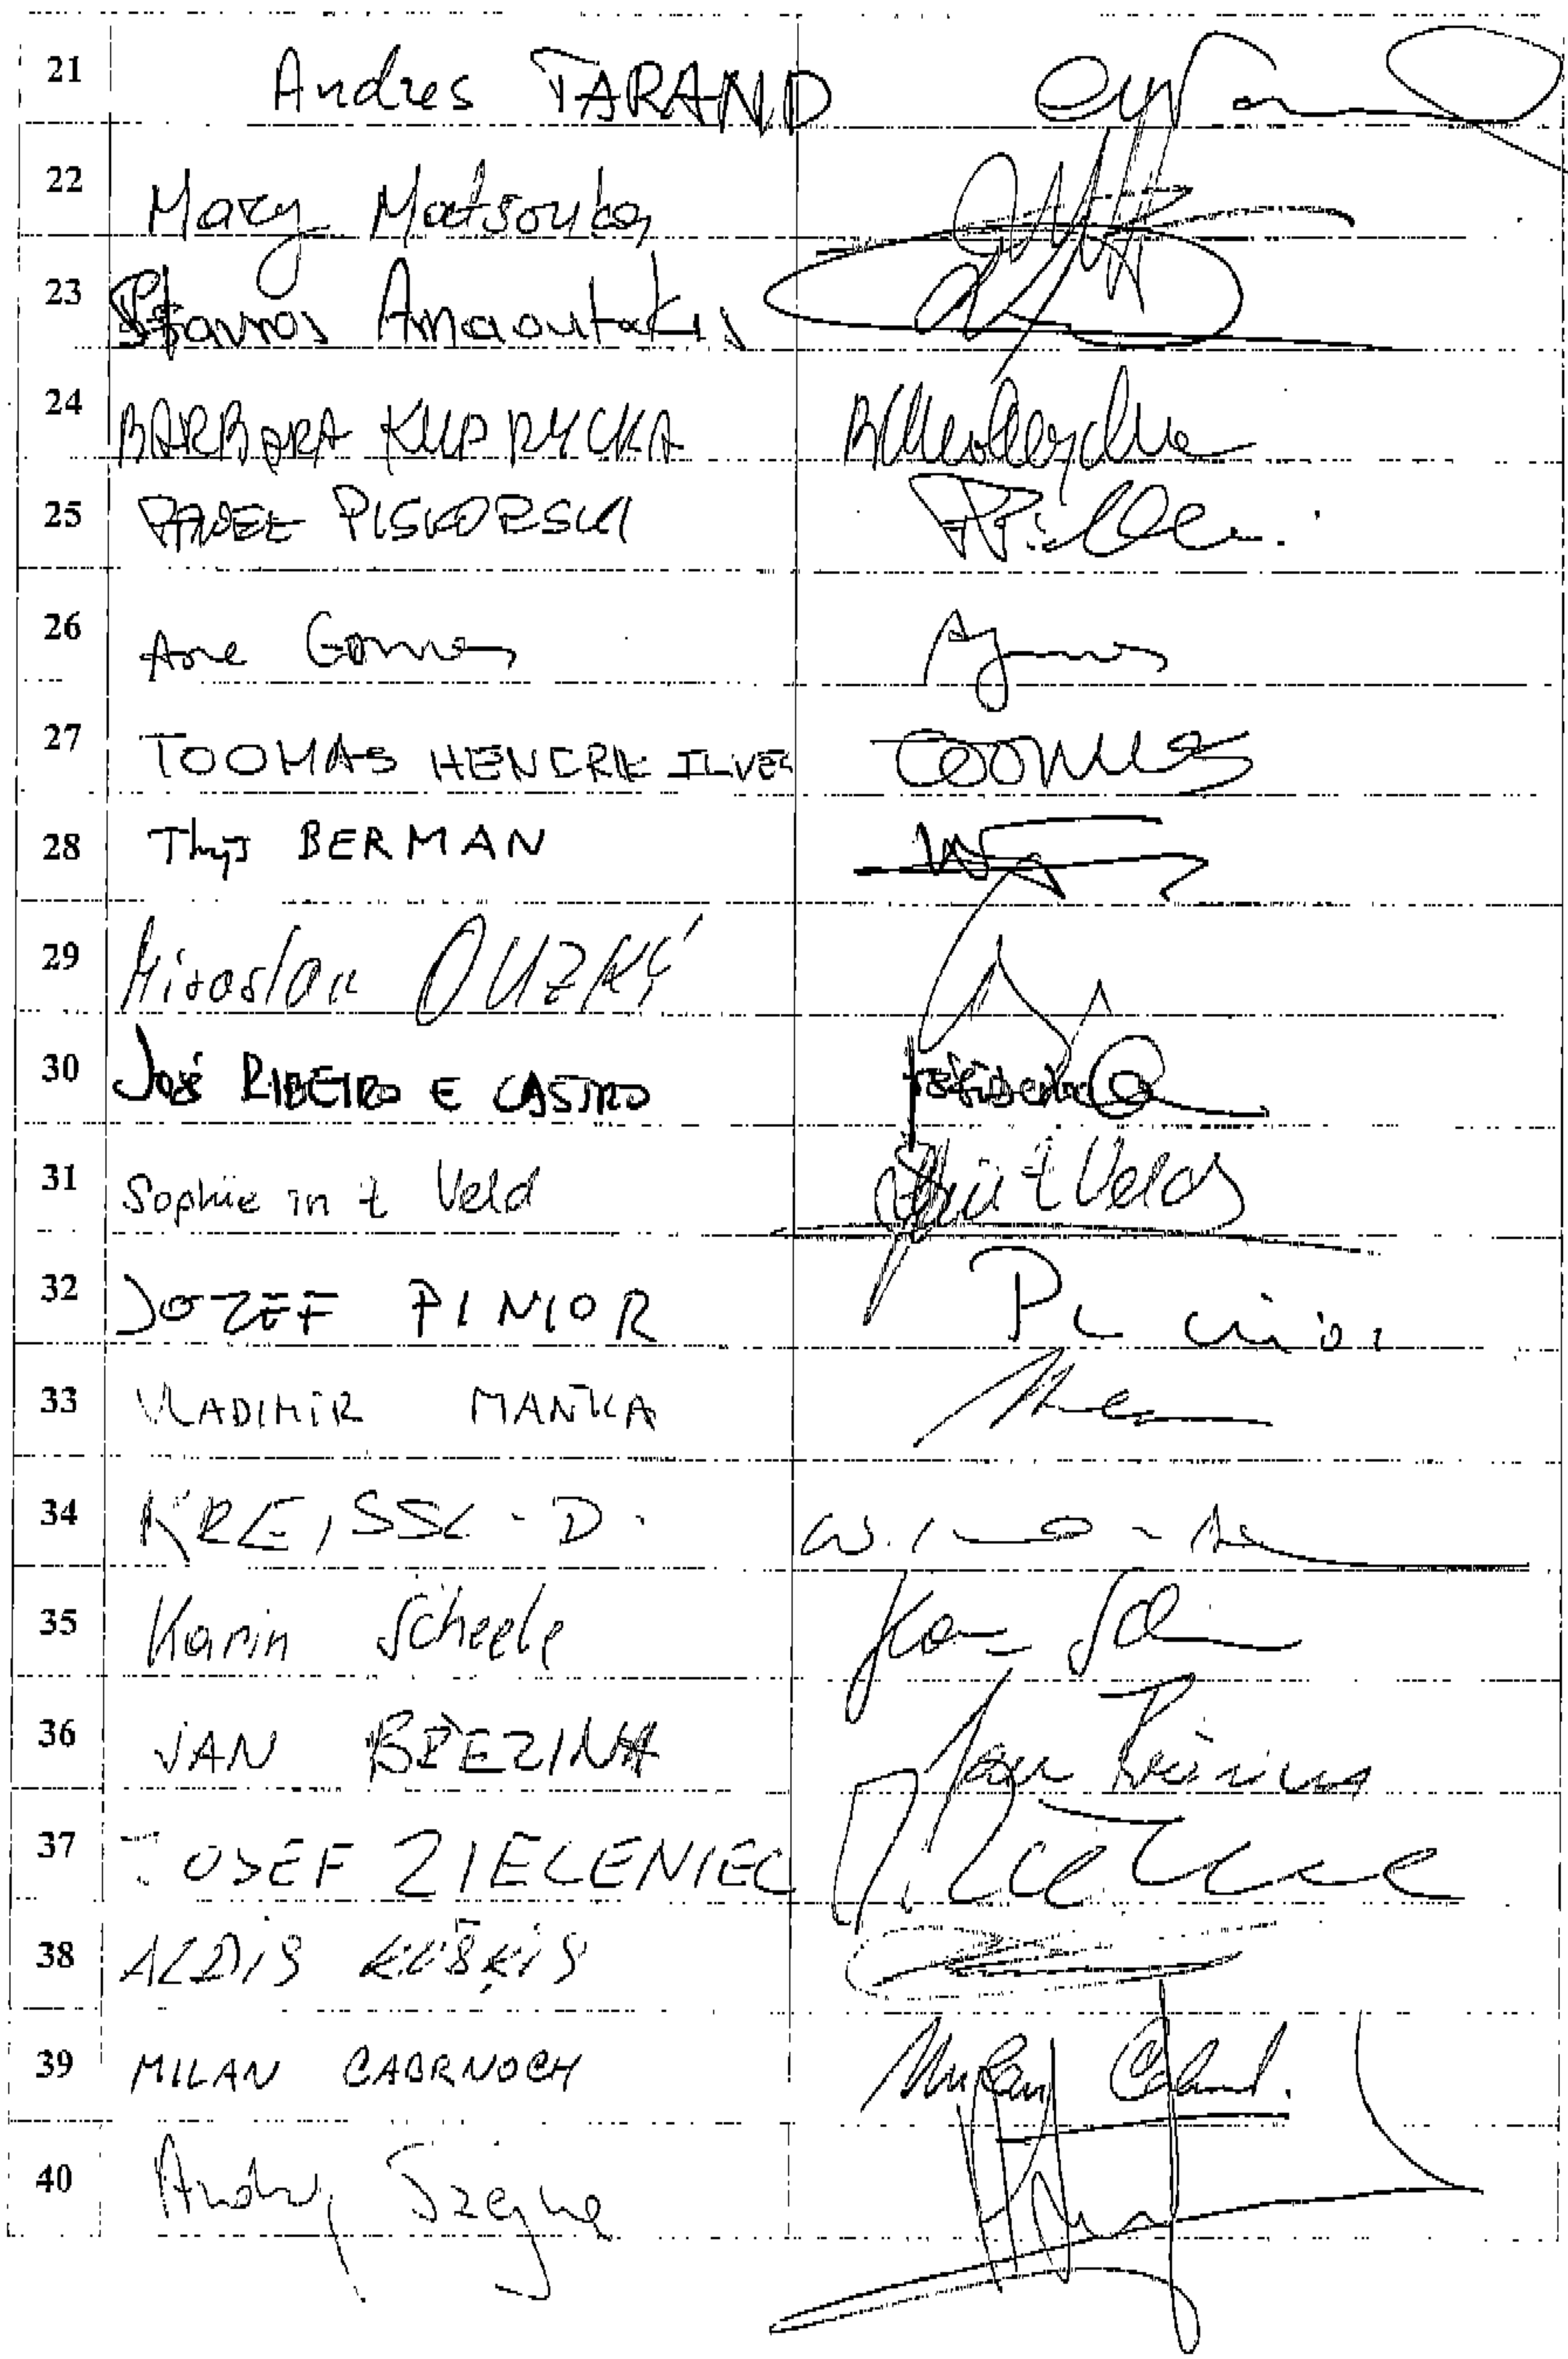 21 Andres TARAND
22 Mary Matsouka
23 Stavros Arnaoutakis
24 BARBARA KUDRYCKA
25 PAWEŁ PISKORSKI
26 Ana Gomes
27 TOOMAS HENDRIK ILVES toomas
28 Thijs BERMAN
29 Miroslav OUZKÝ
30 José RIBEIRO E CASTRO
31 Sophie in t Veld in t Veld
32 JOZEF PINIOR Pinior
33 VLADIMIR MAŇKA
34 KREISSL-D.
35 Karin Scheele
36 JAN BŘEZINA Jan Březina
37 JOSEF ZIELENIEC
38 ALDIS KUŠĶIS
39 MILAN CABRNOCH Milan
40 Andrzej Szejna